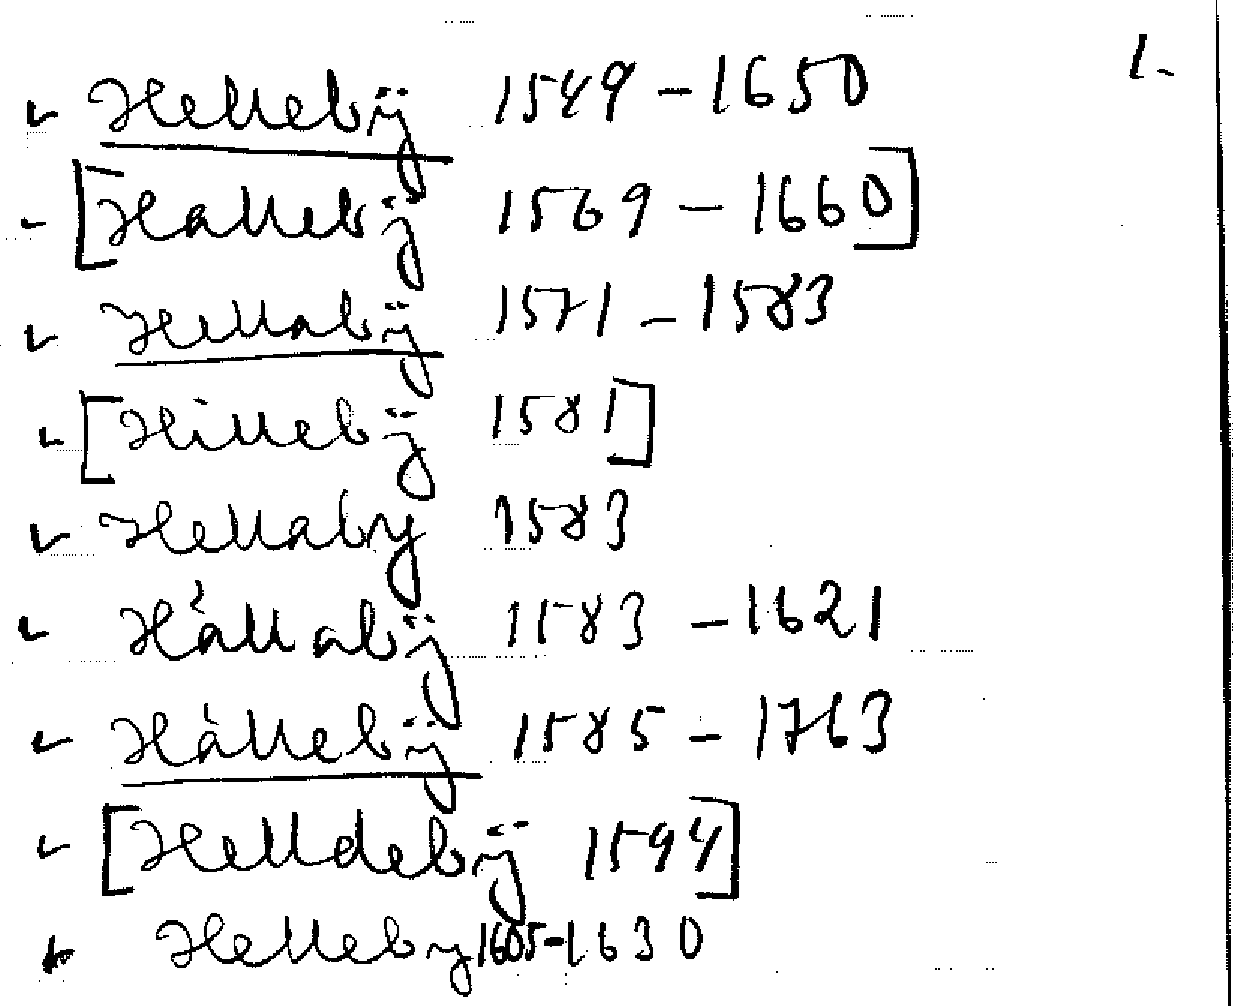 1.
Hellebÿ 1549-1650
[Hallebÿ 1569-1660]
Hellabÿ 1571-1583
[Hillebÿ 1581]
Hellaby 1583
Hällabÿ 1583-1621
Hällebÿ 1585-1763
[Helldebÿ 1594]
Helleby 1605-1630